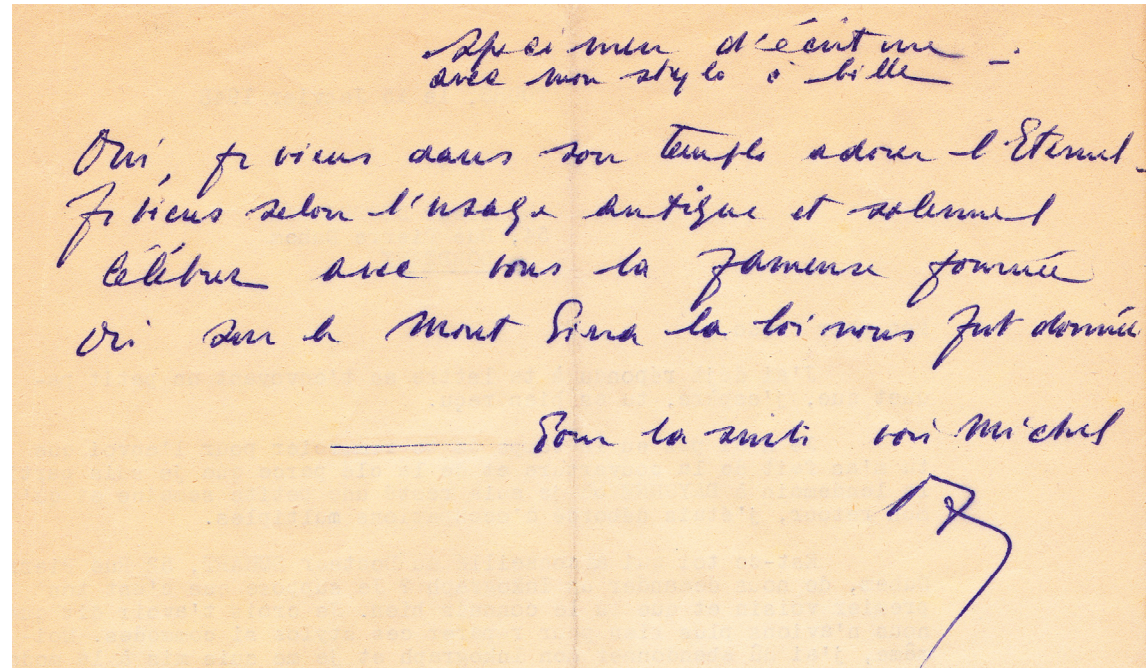 Specimen d'écriture -
avec mon stylo à bille
Oui, je viens dans son temple adorer l'Eternel -
Je viens selon l'usage antique et solennel
Célébrer avec vous la fameuse journée
Où sur le Mont Sina la loi nous fut donnée
Pour la suite voir Michel